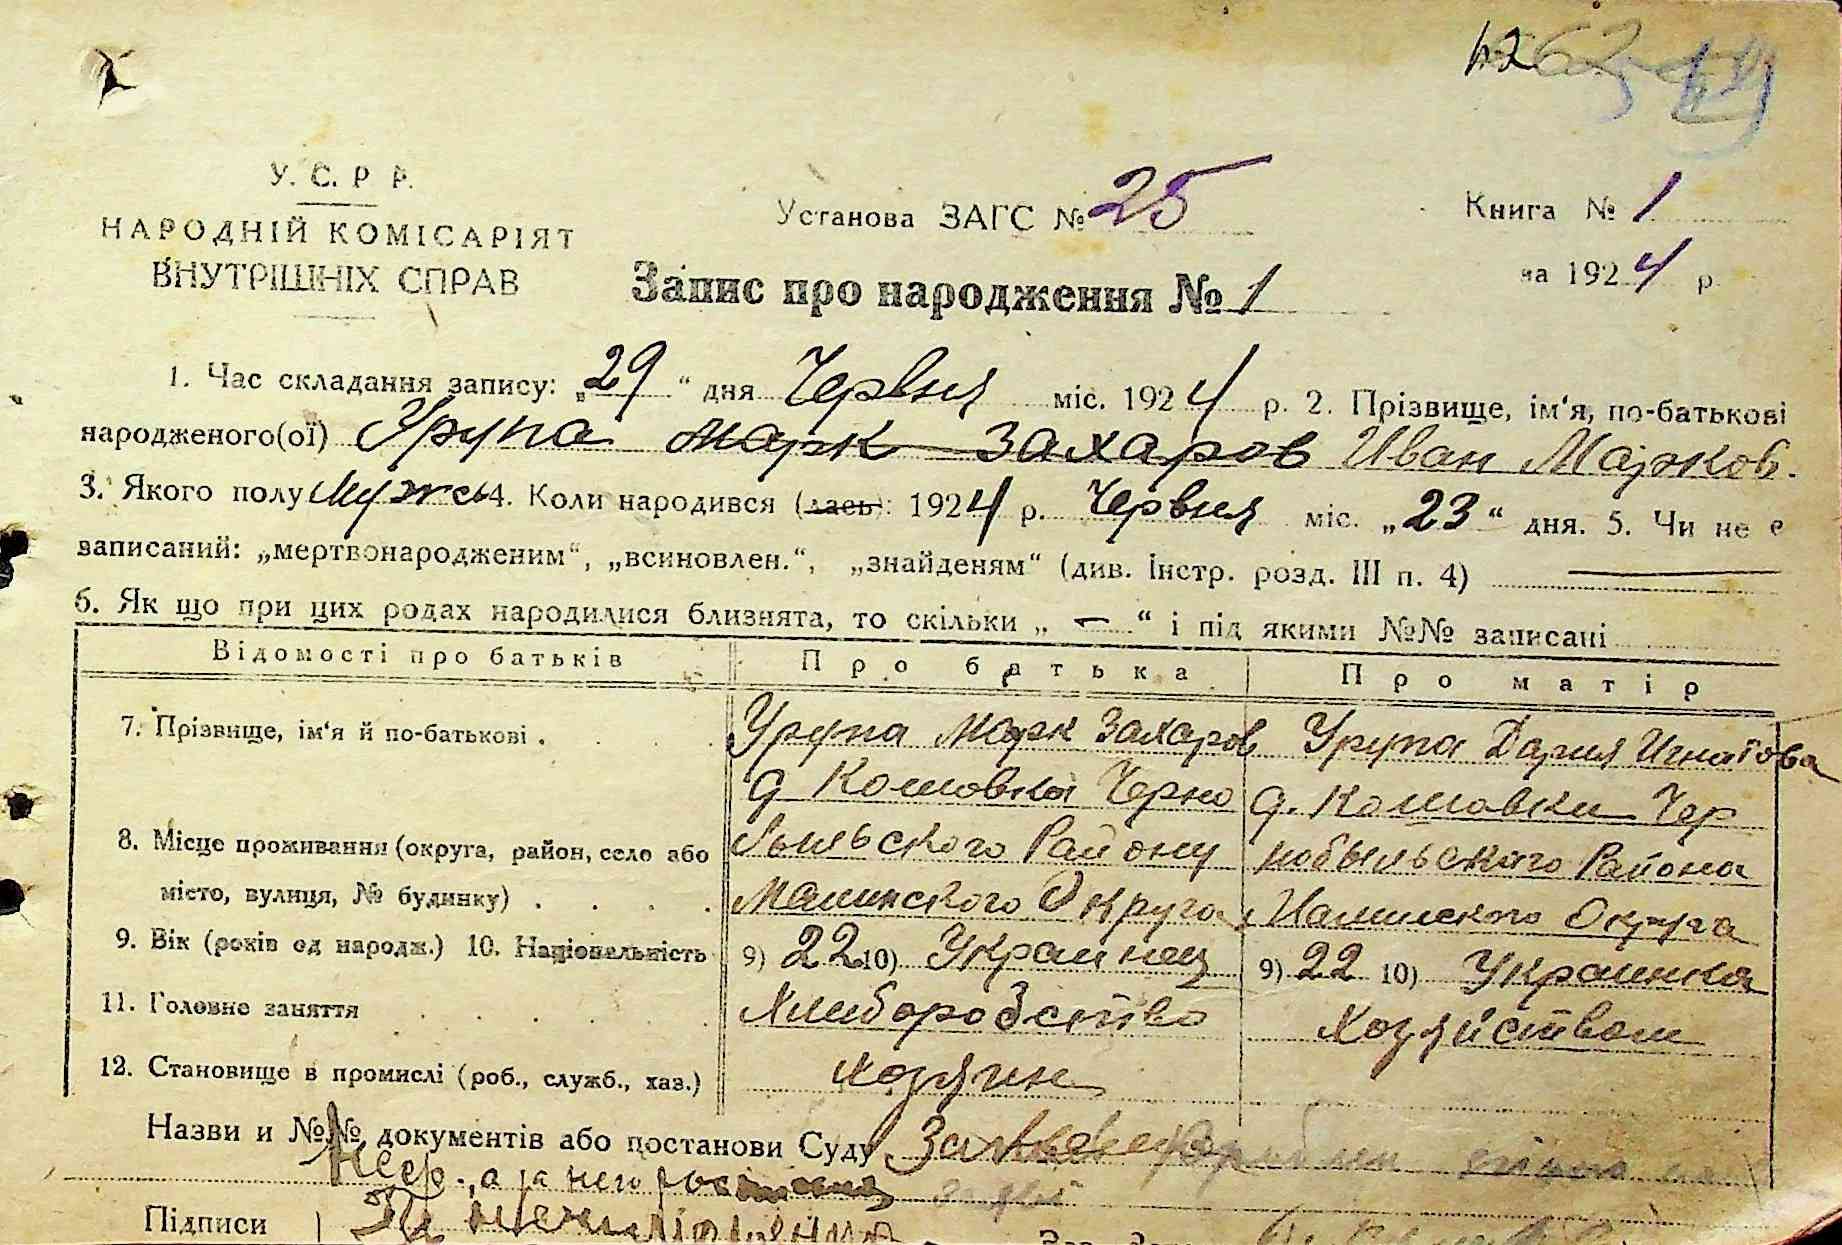 62 62
У. С. Р. Р.
НАРОДНІЙ КОМІСАРІЯТ
ВНУТРІШНІХ СПРАВ
Установа ЗАГС № 25
Книга № 1
на 1924 р.
Запис про народження № 1
1. Час складання запису: „29“ дня Червня міс. 1924 р. 2. Прізвище, ім‘я, по-батькові
народженого(ої) Урупа Марк Захаров Иван Марков.
3. Якого полу Мужсь 4. Коли народився (лась): 1924 р. Червня міс. „23“ дня. 5. Чи не є
записаний: „мертвонародженим“, „всиновлен.“, „знайденям“ (див. Інстр. розд. III п. 4) ——
6. Як що при цих родах народилися близнята, то скільки „ — “ і під якими №№ записані
Відомості про батьків Про батька Про матір
7. Прізвище, ім‘я й по-батькові . Урупа Марк Захаров Урупа Дария Игнатова
д Кошовка Черно д. Кошовки Чер
8. Місце проживання (округа, район, село або быльського Району нобыльского Района
місто, вулиця, № будинку) . Малинского Округа Малинского Округа
9. Вік (років од народж.) 10. Національність 9) 22 10) Украинец 9) 22 10) Украинка
11. Головне заняття Хлиборобство Хозяйством
12. Становище в промислі (роб., служб., хаз.) хозяин
Назви и №№ документів або постанови Суду
а за него
Підписи